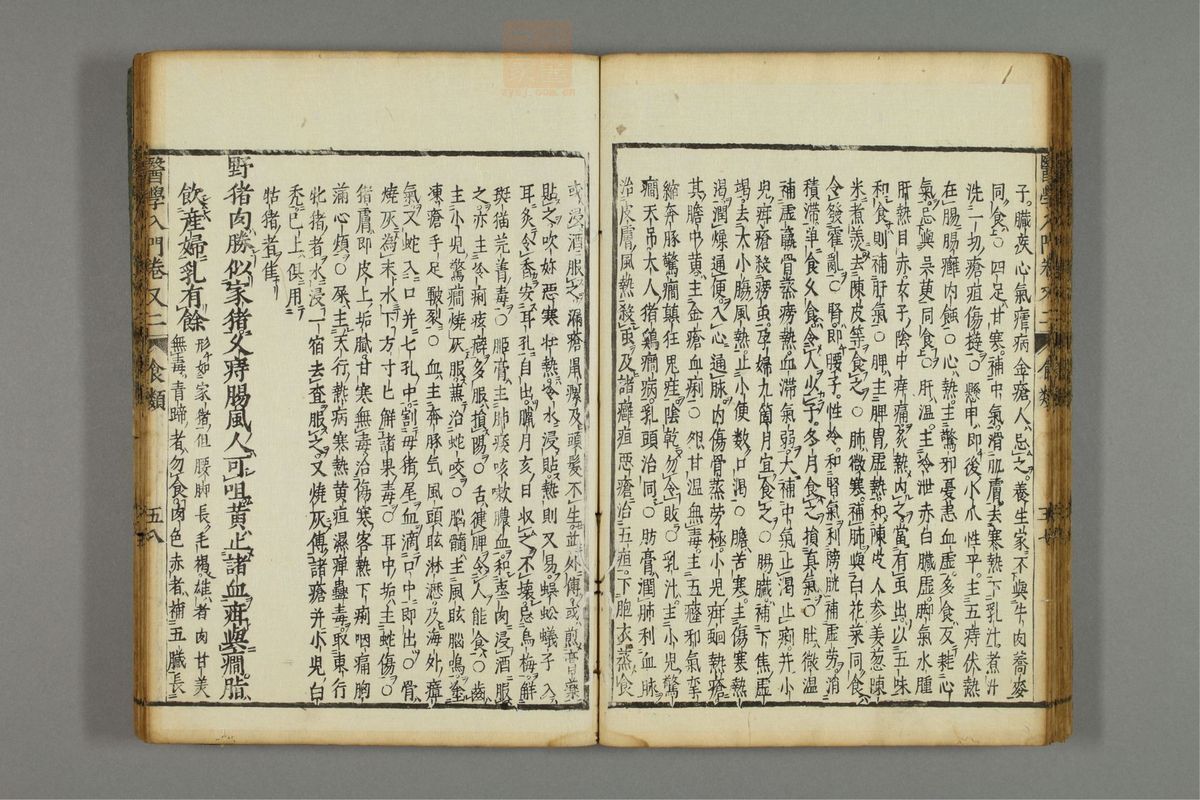 子臟疾心氣痛病金瘡人忌之養生家不與牛肉蕎麥
同食○四足甘寒補中氣滑肌膚去寒熱下乳汁煮汁
洗一切瘡疽傷撻○懸甲即後小爪性平主五痔伏熱
在腸腸癰內蝕○心熱主驚邪憂恚血虛多食反耗心
氣忌與吳茰同食○肝溫主冷泄赤白臟虛脚氣水腫
肝熱目赤女子陰中痒痛炙熱內之當有虫出以五味
和食則補肝氣○脾主脾胃虛熱和陳皮人參羹葱陳
米煮羹去陳皮等食之○肺微寒補肺與白花菜同食
令發霍亂○腎即腰子性冷和腎氣利膀胱補虛勞消
積滯單食久食令人少子冬月食之損真氣○肚微溫
補虛羸骨蒸癆熱血滯氣弱大補中氣止渴止痢并小
兒疳瘡殺癆虫孕婦九箇月宜食之○腸臟補下焦虛
竭去大小腸風熱止小便數口渴○膽苦寒主傷寒熱
渴潤燥通便入心通脉內傷骨蒸勞極小兒疳蛔熱瘡
其膽中黃主金瘡血痢○𦙶甘溫無毒主五癃邪氣攣
縮奔豚驚癎顛狂鬼疰陰乾勿令敗○乳汁主小兒驚
癎天吊大人猪鷄癎病乳頭治同○肪膏潤肺利血脉
治皮膚風熱殺虫及諸癰疽惡瘡治五疸下胞衣蒸食
或浸酒服之漏瘡鼠瘰及頭髮不生並外傅或煎膏藥
貼之吹妳惡寒壯熱冷水浸貼熱則又易蜈蚣蟻子入
耳炙令香安耳孔自出臘月亥日收之不壞忌烏梅解
斑猫芫菁毒○脤膏主肺痿咳嗽膿血和棗肉浸酒服
之亦主冷痢痃癖多服損陽○舌健脾令人能食○齒
主小兒驚癎燒灰服兼治蛇咬○腦髓主風眩腦鳴金
凍瘡手足皸裂○血主奔豚氣風頭眩淋瀝及海外瘴
氣又蛇入口并七孔中割母猪尾血滴口中即出○骨
燒灰為末水下方寸匕解諸果毒○耳中垢主蛇傷○
猪膚即皮上垢膩甘寒無毒治傷寒客熱下痢咽痛胸
滿心煩○屎主天行熱病寒熱黃疸濕痺蠱毒取東行
牝猪者水浸一宿去査服之又燒灰傅諸瘡并小兒白
禿已上俱用
牯猪者佳
野猪肉勝似家猪久痔腸風人可咀黃止諸血疳與癎脂
飲產婦乳有餘 形如家猪但腰脚長毛褐雄者肉甘美
無毒青蹄者勿食肉色赤者補五臟長
醫學入門卷又二 食類 五八